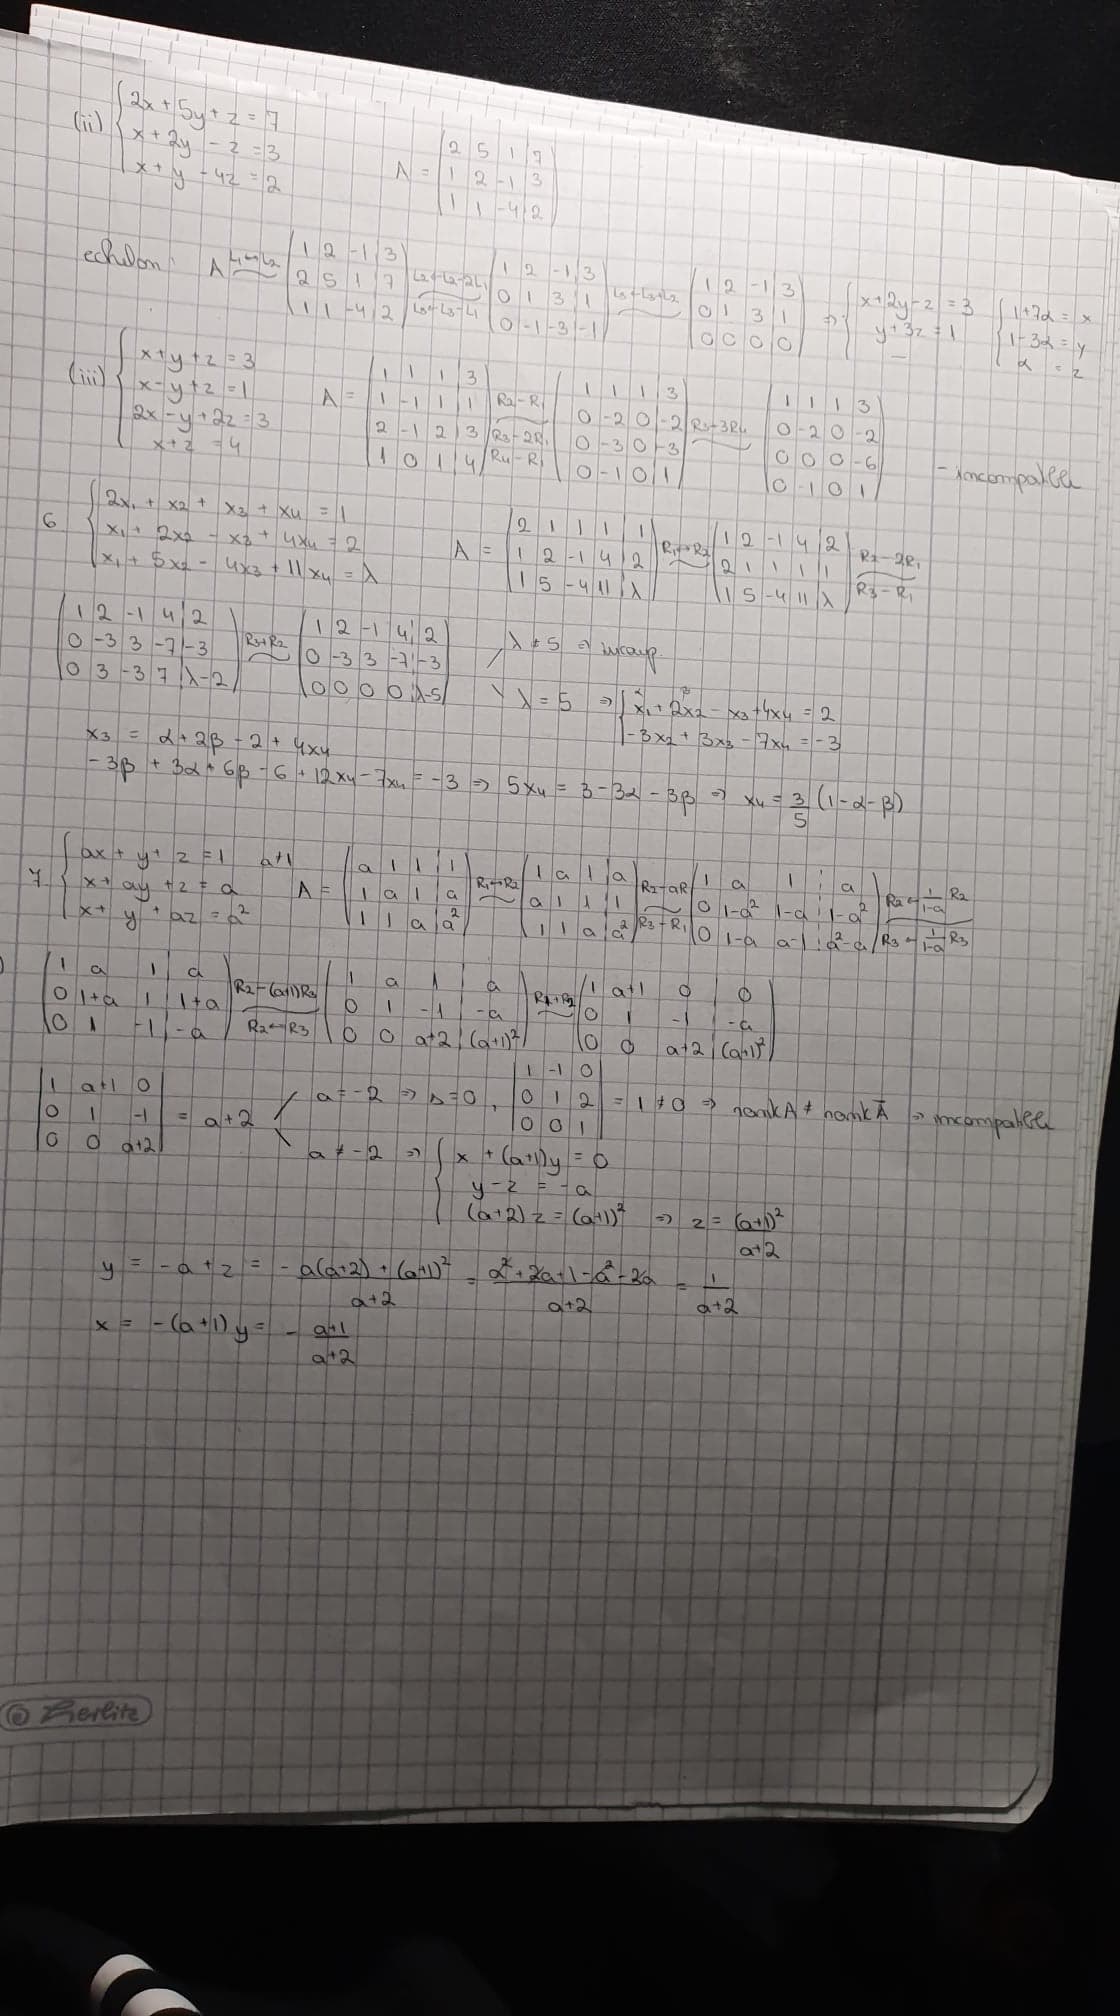 (ii) { 2x + 5y + z = 7
x + 2y - z = 3
x + y - 4z = 2
A = ( 2 5 1 | 7
1 2 -1 | 3
1 1 -4 | 2 )
echelon: A L1↔L2 ~ ( 1 2 -1 | 3
2 5 1 | 7
1 1 -4 | 2 ) L2←L2-2L1 L3←L3-L1 ~ ( 1 2 -1 | 3
0 1 3 | 1
0 -1 -3 | -1 ) L3←L3+L2 ~ ( 1 2 -1 | 3
0 1 3 | 1
0 0 0 | 0 ) ⇒ { x+2y-z = 3
y+3z = 1
—
{ 1+7α = x
1-3α = y
α = z
(iii) { x+y+z = 3
x-y+z = 1
2x-y+2z = 3
x+z = 4
A = ( 1 1 1 | 3
1 -1 1 | 1
2 -1 2 | 3
1 0 1 | 4 ) R2-R1 R3-2R1 R4-R1 ~ ( 1 1 1 | 3
0 -2 0 | -2
0 -3 0 | -3
0 -1 0 | 1 ) R3-3R4 ~ ( 1 1 1 3
0 -2 0 -2
0 0 0 -6
0 -1 0 1 ) - incompatible
6 { 2x1 + x2 + x3 + x4 = 1
x1 + 2x2 - x3 + 4x4 = 2
x1 + 5x2 - 4x3 + 11x4 = λ
A = ( 2 1 1 1 | 1
1 2 -1 4 | 2
1 5 -4 11 | λ ) R1↔R2 ~ ( 1 2 -1 4 | 2
2 1 1 1 | 1
1 5 -4 11 | λ ) R2-2R1 R3-R1 ~
( 1 2 -1 4 | 2
0 -3 3 -7 | -3
0 3 -3 7 | λ-2 ) R3+R2 ~ ( 1 2 -1 4 | 2
0 -3 3 -7 | -3
0 0 0 0 | λ-5 )
λ ≠ 5 ⇒ incomp.
λ = 5 ⇒ { x1 + 2x2 - x3 + 4x4 = 2
-3x2 + 3x3 - 7x4 = -3
x3 = α + 2β - 2 + 4x4
-3β + 3α + 6β - 6 + 12x4 - 7x4 = -3 ⇒ 5x4 = 3 - 3α - 3β ⇒ x4 = 3/5 (1-α-β)
7. { ax + y + z = 1 a≠1
x + ay + z = a
x + y + az = a²
A = ( a 1 1 | 1
1 a 1 | a
1 1 a | a² ) R1↔R2 ~ ( 1 a 1 | a
a 1 1 | 1
1 1 a | a² ) R2-aR1 R3-R1 ~ ( 1 a 1 | a
0 1-a² 1-a | 1-a²
0 1-a a-1 | a²-a ) R2← 1/(1-a) R2 R3← 1/(1-a) R3
( 1 a 1 | a
0 1+a 1 | 1+a
0 1 -1 | -a ) R2-(a+1)R3 R2↔R3 ~ ( 1 a 1 | a
0 1 -1 | -a
0 0 a+2 | (a+1)² ) R1+R2 ~ ( 1 a+1 0 | 0
0 1 -1 | -a
0 0 a+2 | (a+1)² )
| 1 a+1 0
0 1 -1
0 0 a+2 | = a+2
a = -2 ⇒ Δ=0, | 1 -1 0
0 1 2
0 0 1 | = 1 ≠ 0 ⇒ rank A ≠ rank Ā ⇒ incompatible
a ≠ -2 ⇒ { x + (a+1)y = 0
y - z = -a
(a+2) z = (a+1)² ⇒ z = (a+1)²/(a+2)
y = -a + z = (-a(a+2) + (a+1)²)/(a+2) = (a²+2a+1-a²-2a)/(a+2) = 1/(a+2)
x = -(a+1)y = - (a+1)/(a+2)
Herlitz